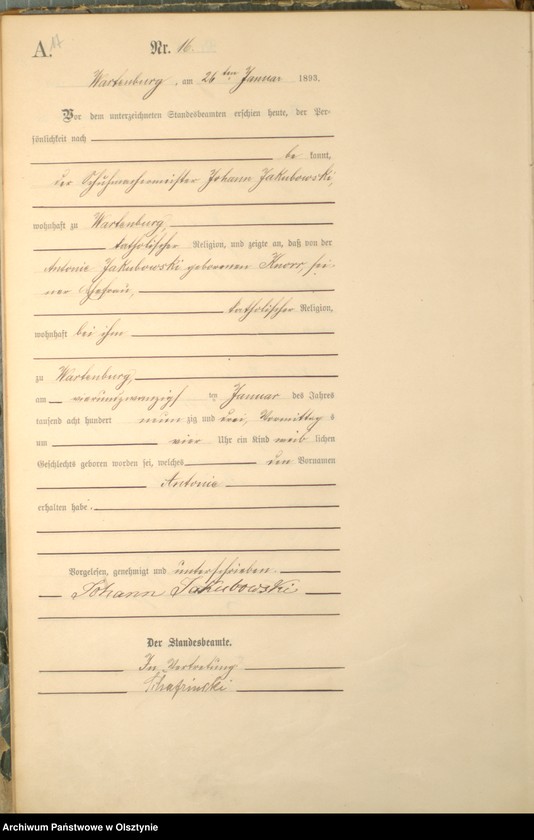 A. 17 Nr. 16.
Wartenburg, am 26 ten Januar 1893.
Vor dem unterzeichneten Standesbeamten erschien heute, der Per-
sönlichkeit nach
be kannt,
der Schuhmachermeister Johann Jakubowski,
wohnhaft zu Wartenburg,
katholischer Religion, und zeigte an, daß von der
Antonie Jakubowski geborenen Knorr, sei-
ner Ehefrau,
katholischer Religion,
wohnhaft bei ihm
zu Wartenburg,
am vierundzwanzigsten Januar des Jahres
tausend acht hundert neunzig und drei, Vormittags
um vier Uhr ein Kind weiblichen
Geschlechts geboren worden sei, welches den Vornamen
Antonie
erhalten habe.
Vorgelesen, genehmigt und unterschrieben
Johann Jakubowski
Der Standesbeamte.
In Vertretung
Archiwum Państwowe w Olsztynie